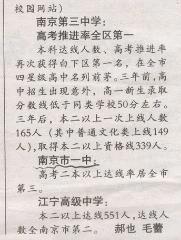 校园网站)
南京第三中学：
高考推进率全区第一
本科达线人数、高考推进率
再次获得白下区第一名，在全市
四星级高中名列前茅。三年前，高
中招生出现意外，高一新生录取
分数线低于同类学校50分左右。
三年后，本二以上一次上线人数
165人（其中普通文化类上线149
人），取得本二以上资格线339人。
南京市一中：
高考二本以上达线率居全市
第三。
江宁高级中学：
本二以上达线551人，达线人
数全南京市第二。 郝也 毛蕾